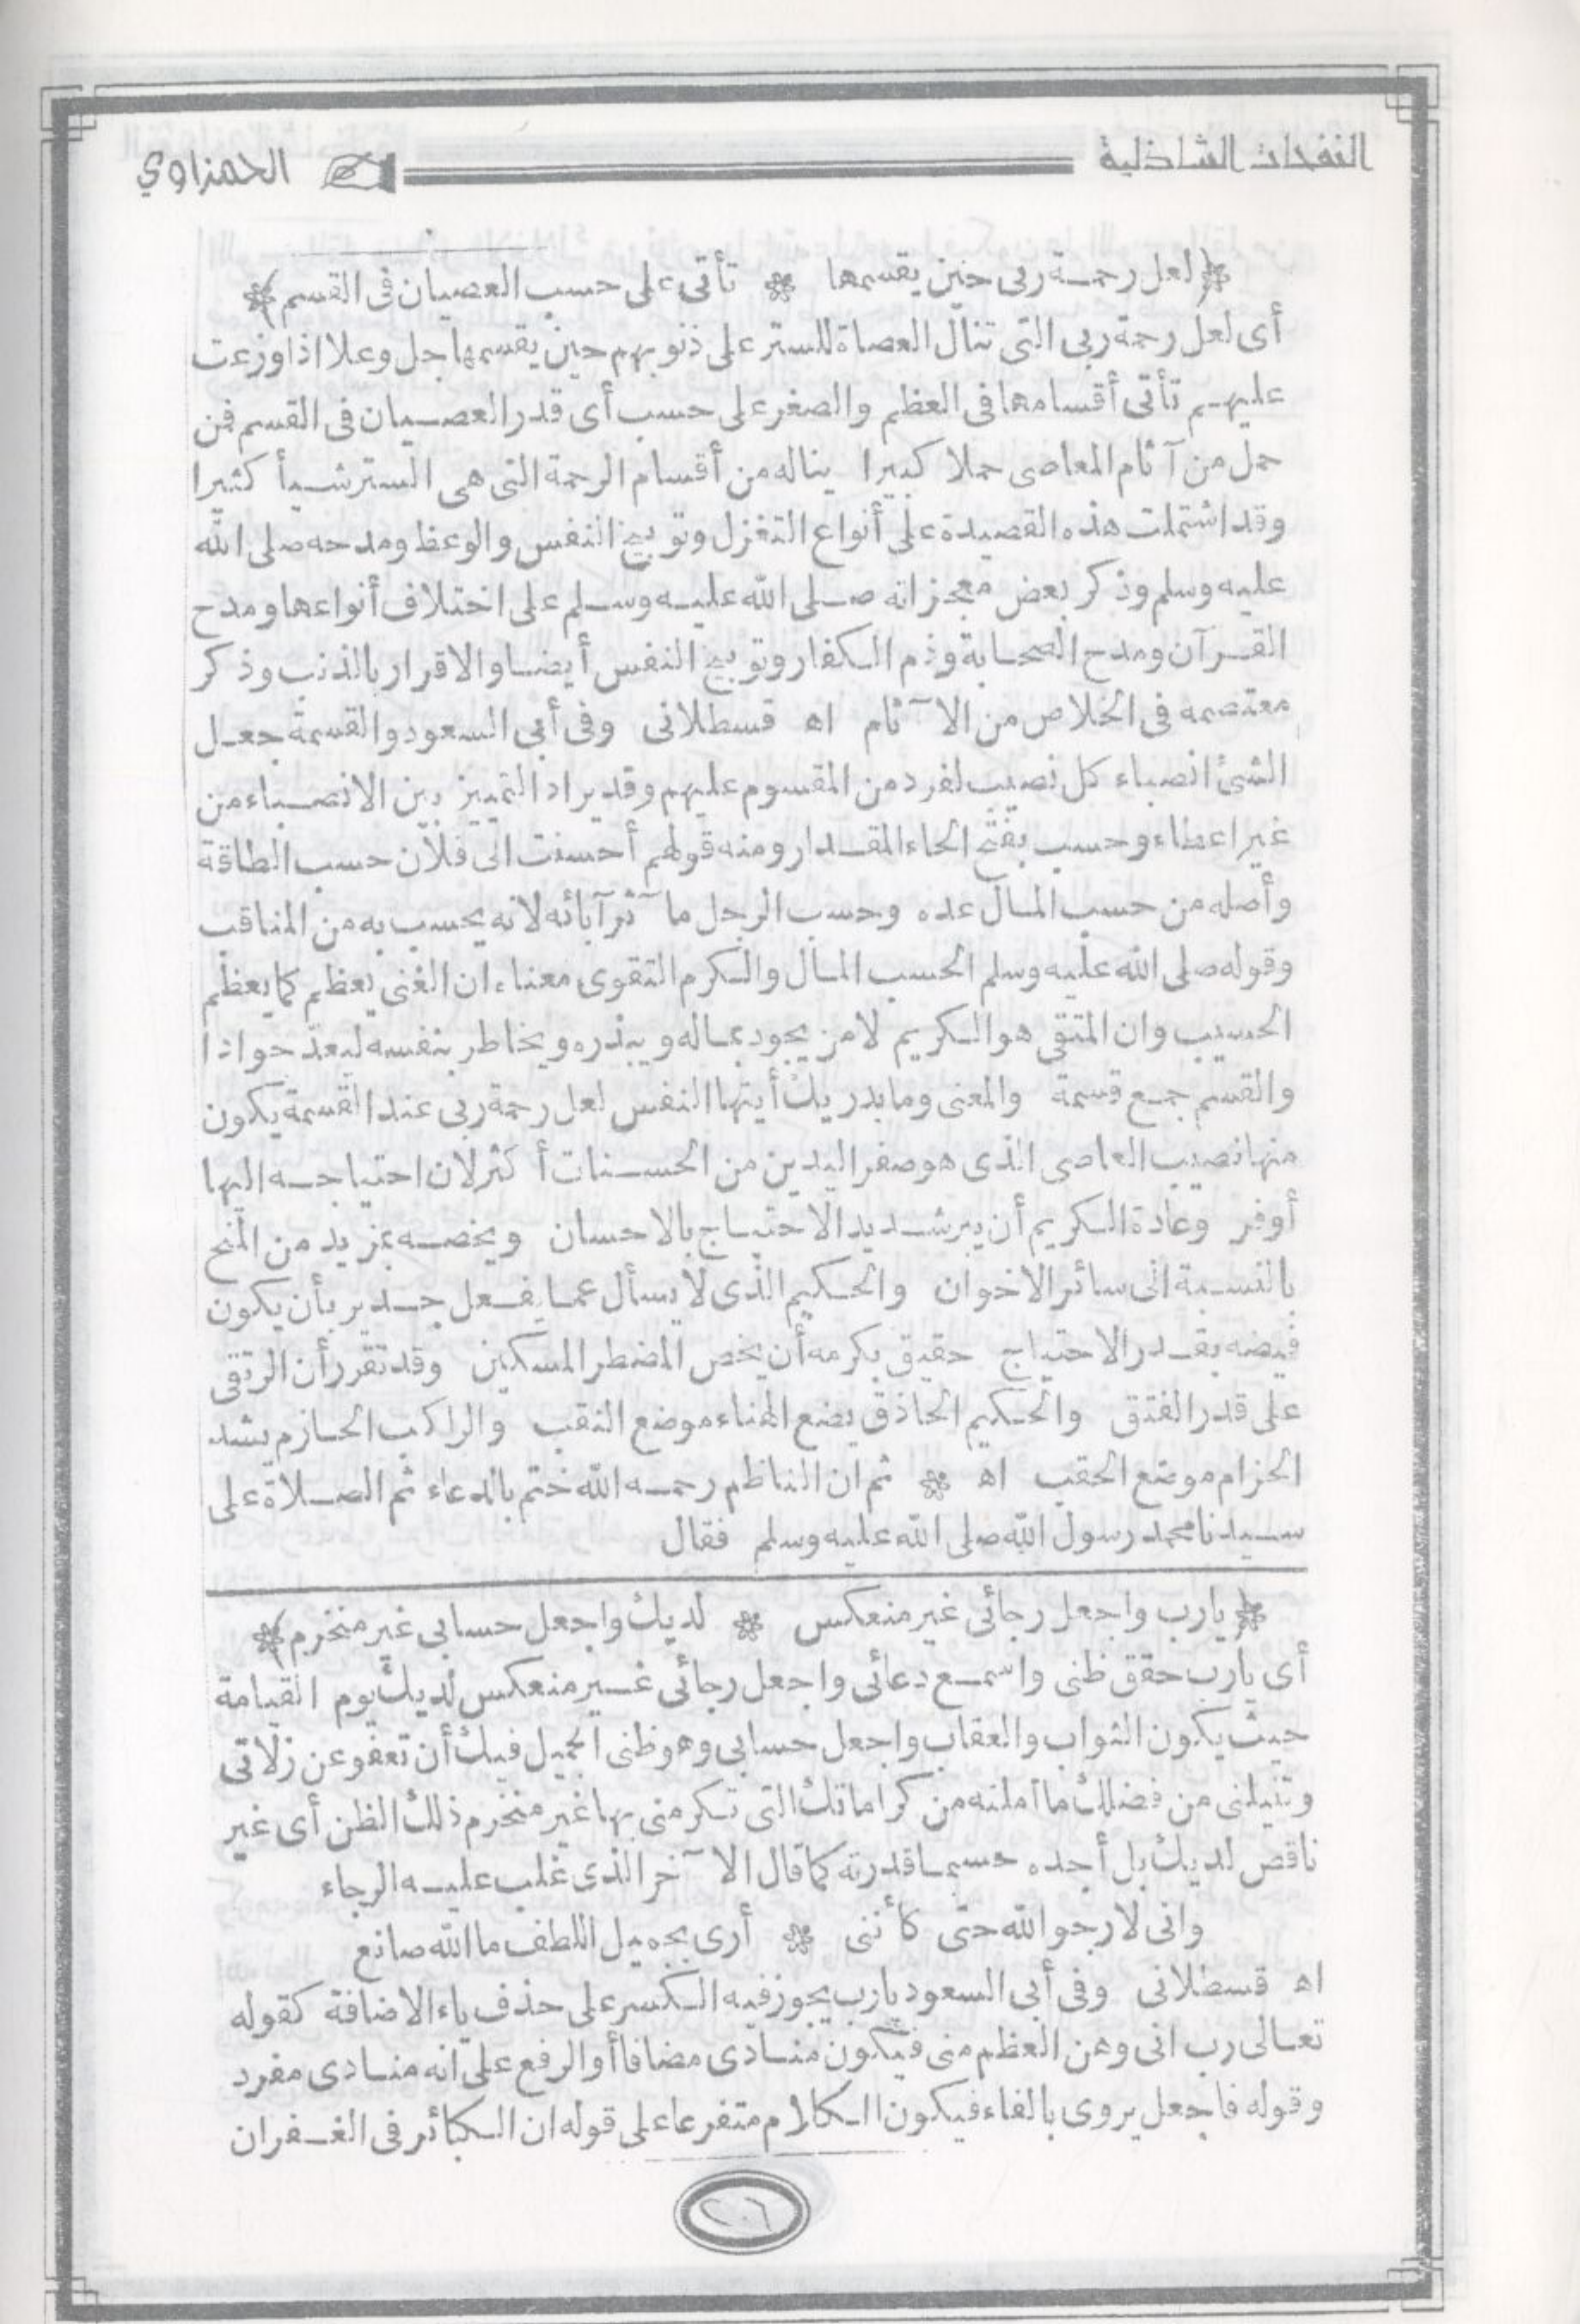 النفحات الشاذلية الحمزاوي
﴿لعل رحمة ربى حين يقسمها * تأتى على حسب العصيان فى القسم﴾
أى لعل رحمة ربى التى تنال العصاة للستر على ذنوبهم حين يقسمها جل وعلا اذا وزعت
عليهم تأتى أقسامها فى العظم والصغر على حسب أى قدر العصيان فى القسم فمن
حمل من آثام المعاصى حملا كبيرا يناله من أقسام الرحمة التى هى الستر شيأ كثيرا
وقد اشتملت هذه القصيدة على أنواع التغزل وتوبيخ النفس والوعظ ومدحه صلى الله
عليه وسلم وذكر بعض معجزاته صلى الله عليه وسلم على اختلاف أنواعها ومدح
القرآن ومدح الصحابة وذم الكفار وتوبيخ النفس أيضا والاقرار بالذنب وذكر
معتصمه فى الخلاص من الآثام اه قسطلانى وفى أبى السعود والقسمة جعل
الشئ انصباء كل نصيب لفرد من المقسوم عليهم وقد يراد التمييز بين الانصباء من
غير اعطاء وحسب بفتح الحاء المقدار ومنه قولهم أحسنت الى فلان حسب الطاقة
وأصله من حسب المال عده وحسب الرجل مآثر آبائه لانه يحسب به من المناقب
وقوله صلى الله عليه وسلم الحسب المال والكرم التقوى معناه ان الغنى يعظم كما يعظم
الحسيب وان المتقى هو الكريم لا من يجود بماله ويبذره ويخاطر بنفسه ليعدّ جوادا
والقسم جمع قسمة والمعنى وما يدريك أيتها النفس لعل رحمة ربى عند القسمة يكون
منها نصيب العاصى الذى هو صفر اليدين من الحسنات أكثر لان احتياجه اليها
أوفر وعادة الكريم أن يبر شديد الاحتياج بالاحسان ويخصه بمزيد من المنح
بالنسبة الى سائر الاخوان والحكيم الذى لا يسأل عما يفعل جدير بأن يكون
فيضه بقدر الاحتياج حقيق بكرمه أن يخص المضطر المسكين وقد تقرر أن الرتق
على قدر الفتق والحكيم الحاذق يضع الهناء موضع النقب والراكب الحازم يشد
الحزام موضع الحقب اه * ثم ان الناظم رحمه الله ختم بالدعاء ثم الصلاة على
سيدنا محمد رسول الله صلى الله عليه وسلم فقال
﴿يارب واجعل رجائى غير منعكس * لديك واجعل حسابى غير منخرم﴾
أى يارب حقق ظنى واسمع دعائى واجعل رجائى غير منعكس لديك يوم القيامة
حيث يكون الثواب والعقاب واجعل حسابى وهو ظنى الجميل فيك أن تعفو عن زلاتى
وتنيلنى من فضلك ما أملته من كراماتك التى تكرمنى بها غير منخرم ذلك الظن أى غير
ناقص لديك بل أجده حسبما قدرته كما قال الآخر الذى غلب عليه الرجاء
وانى لارجو الله حتى كأننى * أرى بجميل اللطف ما الله صانع
اه قسطلانى وفى أبى السعود يارب يجوز فيه الكسر على حذف ياء الاضافة كقوله
تعالى رب انى وهن العظم منى فيكون منادى مضافا أو الرفع على انه منادى مفرد
وقوله فاجعل يروى بالفاء فيكون الكلام متفرعا على قوله ان الكبائر فى الغفران
٢٠٦